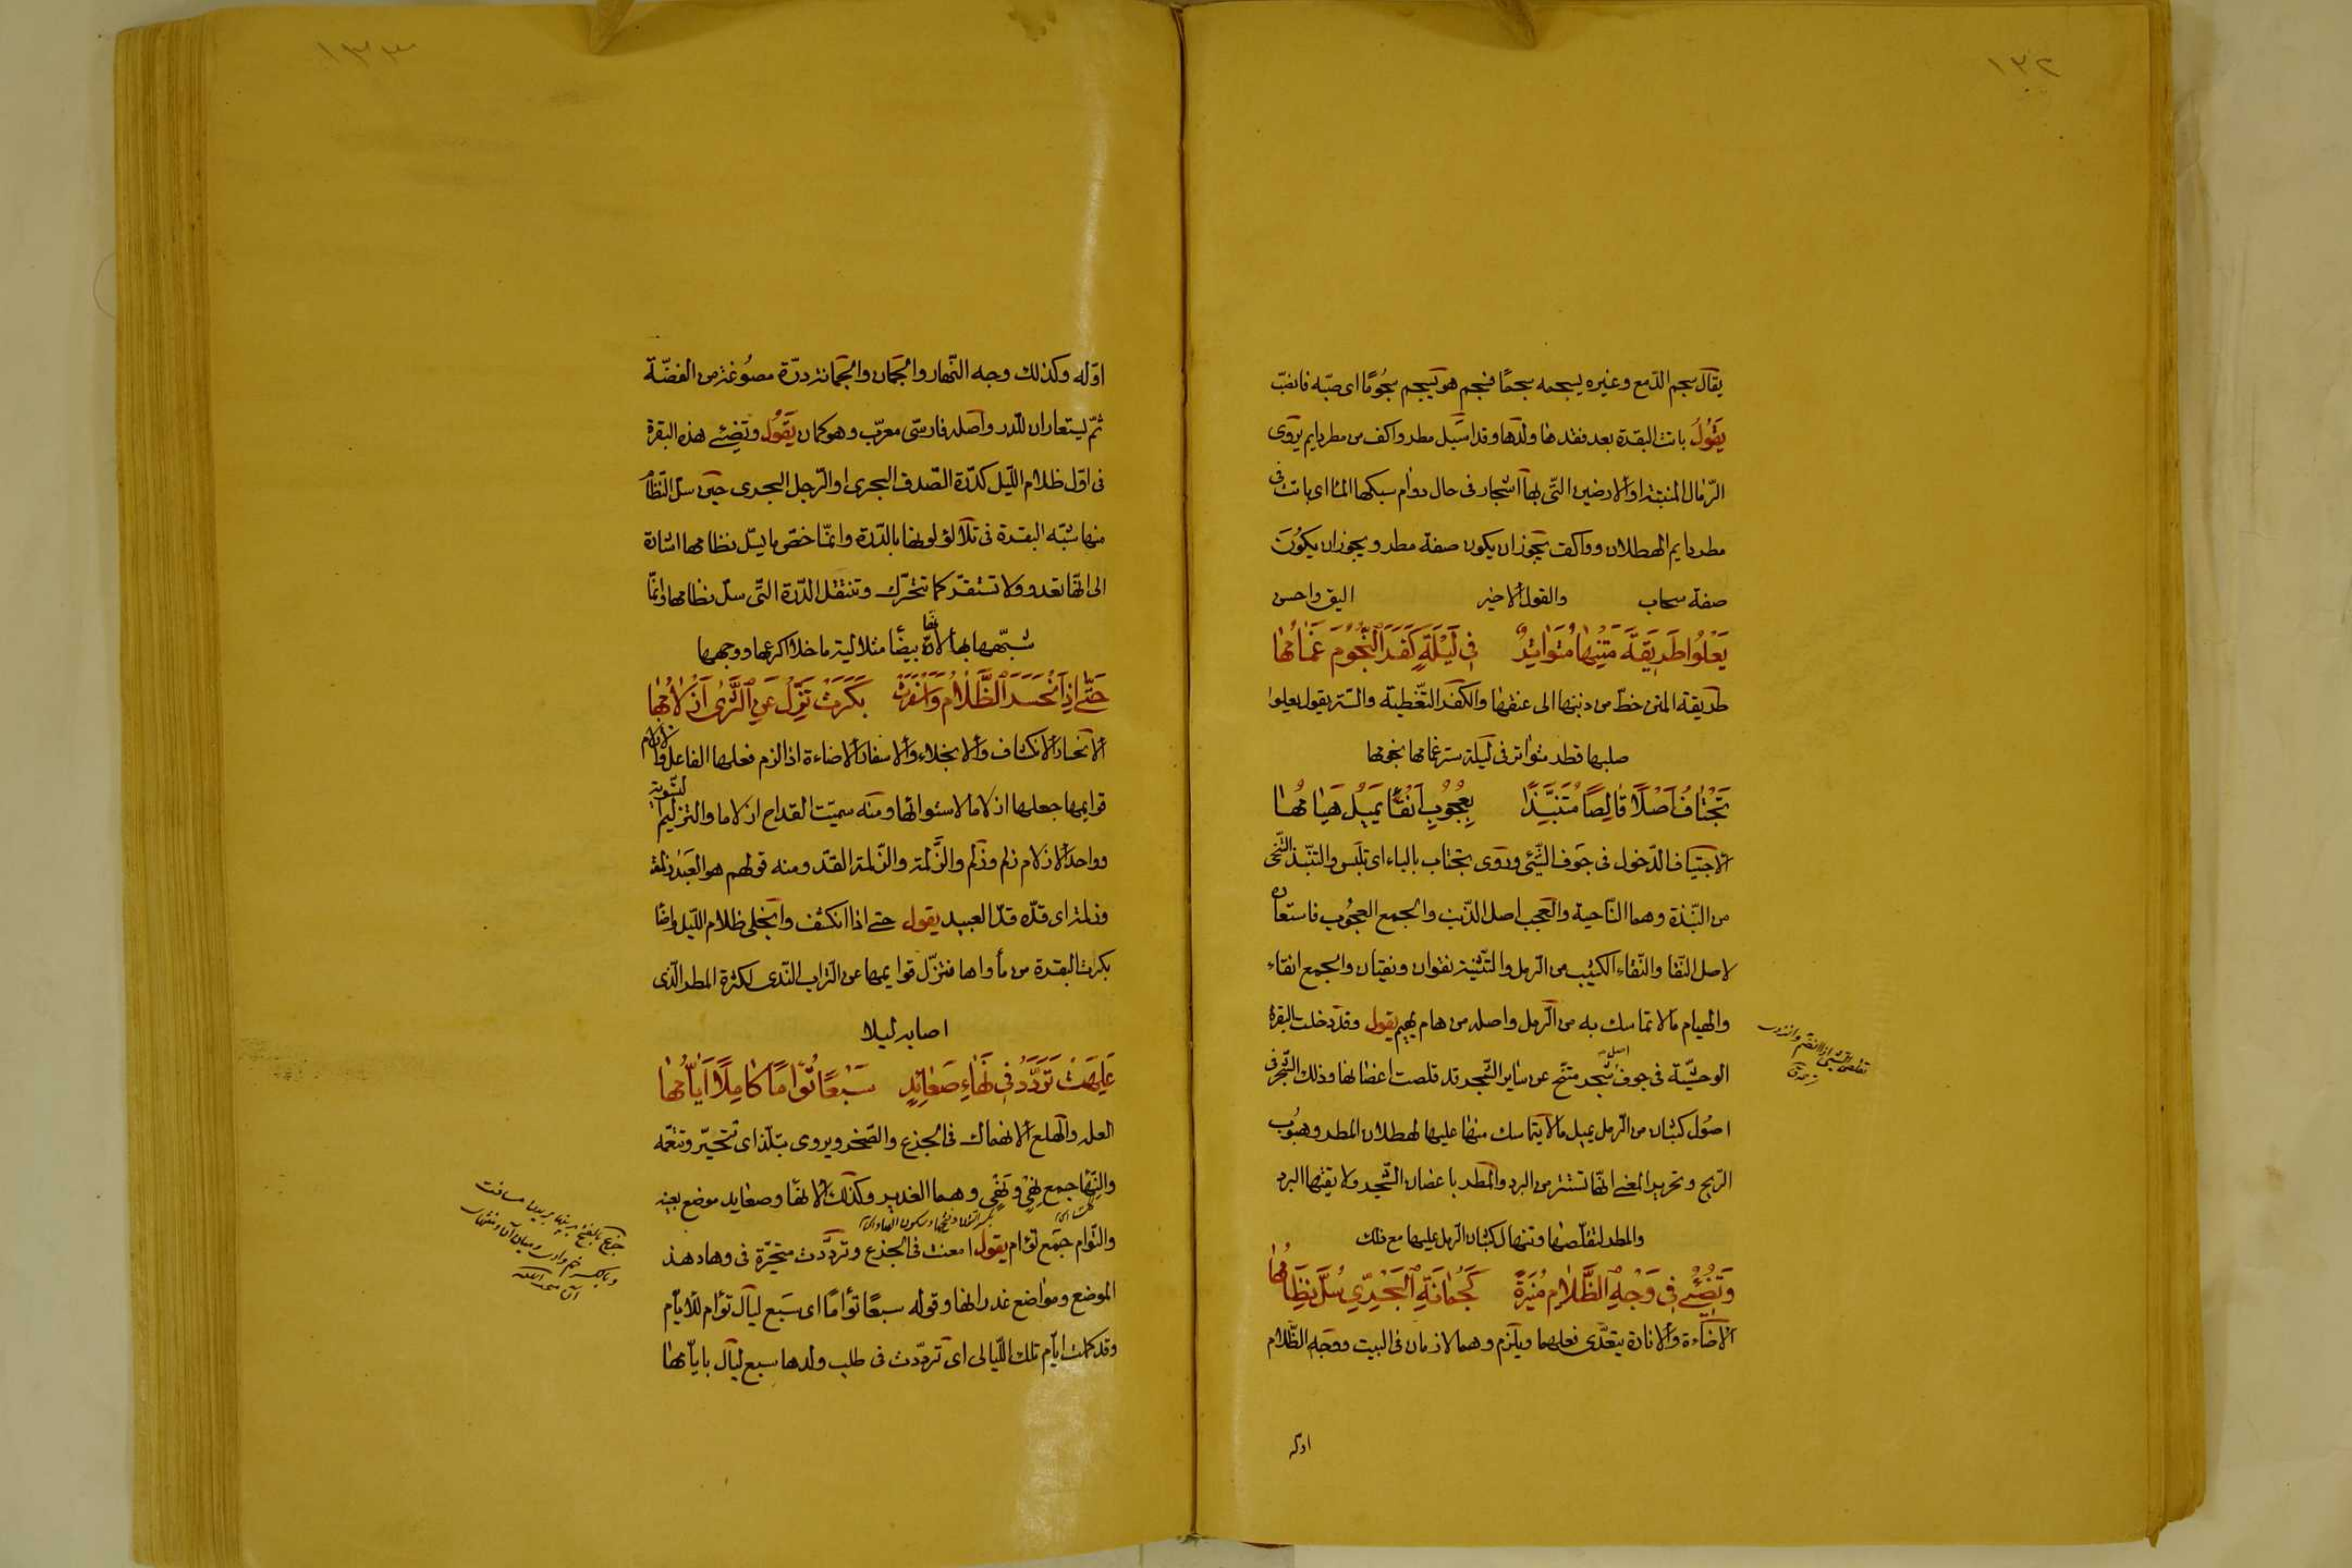 ١٣٢
يقال سجم الدّمع وغيره يسجمه سجمًا فسجم هو يسجم سجُومًا اى صبّه فانصبّ
يَقُولُ باتت البقرة بعد فقدها ولدها وقد اسَبل مطر واكف من مطر دايم يروى
الرّمال المنبتة او الارضين التّى بها اشجار فى حال دوام سبكها المآ اى باتت فى
مطر دايم الهطلان وواكف يجوز ان يكون صفة مطر ويجوز ان يكون
صفة سحاب والقول الاخير اليق واحسن
يَعْلُوا طَرِيقَةَ مَتْنِهَا مُتَوَاتِرٌ فِى لَيْلَةٍ كَفَرَ النُّجُومَ غَمَامُهَا
طريقة المتن خطّ من ذنبها الى عنقها والكفر التّغطية والسّتر يقول يعلوا
صلبها قطر متواتر فى ليلة ستر غمامها نجومها
تَجْتَافُ اَصْلًا قَالِصًا مُتَنَبِّذًا بِعُجُوبِ اَنْقَاءٍ يَمِيلُ هَيَامُهَا
الاجتياف الدّخول فى جوف الشّئ ويروى تجتاب بالباء اى تلبس والتنبّذ التّنحّى
من النّبذة وهما النّاحية والعجب اصل الذّنب والجمع العجُوب فاستعاره
لاصل النّقا والنّقاء الكثيب من الرّمل والتّثنية نقوان ونقيان والجمع انقاء
والهيام ما لا تماسك به من الرّمل واصله من هام يهيم يقول وقد دخلت البقرة
الوحشيّة فى جوف اصل شجر متنحّ عن ساير الشّجر قد قلصت اغصانها وذلك الشّجر فى
اصُول كثبان من الرّمل يميل ما لا يتماسك منها عليها لهطلان المطر وهبُوب
الرّيح وتحرير المعنى انّها تستتر من البرد والمطر باغصان الشّجر ولا يقيها البرد
والمطر لتقلّصها وتنهال كثبان الرّمل عليها مع ذلك
وَتُضِئُ فِى وَجْهِ الظَّلَامِ مُنِيرَةً كَجُمَانَةِ الْبَحْرِىِّ سُلَّ نِظَامُهَا
الاضآءة والانارة يتعدّى فعلهما ويلزم وهما لازمان فى البيت ووجه الظّلام
اوله
١٣٣
اوّله وكذلك وجه النّهار والجمان والجمانة درّة مصُوغة من الفضّة
ثمّ يستعاران للّدر واصله فارسّى معرّب وهو كمان يَقُولُ وتضئ هذه البقرة
فى اوّل ظلام اللّيل كدرّة الصّدف البحرى او الرّجل البحرى حين سلّ النّظام
منها شبّه البقرة فى تلألؤ لونها بالدّرة وانّما خصّ ما يسّل نظامها اشارة
الى انّها تعدو ولا تستقرّ كما تتحرّك وتنتقل الدّرة التّى سلّ نظامها وانمّا
شبّهها بها لانّها بيضا متلالية ما خلا اكرعها ووجهها
حَتّى اِذَا انْحَسَرَ الظَّلَامُ وَاَسْفَرَتْ بَكَرَتْ تَزِلُّ عَنِ الثَّرٰى اَزْلَامُهَا
الانحسار الانكشاف والانجلاء والاسفار الاضاءة اذا لزم فعلها الفاعل والازلام
قوايمها جعلها ازلاما لاستوائها ومنه سميّت القداح ازلاما والتزليم التّسوية
وواحد الازلام زلم وزلم والزَّلمة والزّلمة القدّ ومنه قولهم هو العَبد زلمة
وزلمة اى قدّه قدّ العبيد يقول حتى اذا انكشف وانجلى ظلام اللّيل واضا
بكرت البقرة من مأواها فتزلّ قوايمها عن التراب النّدى لكثرة المطر الّذى
اصابه ليلا
عَلِهَتْ تَرَدَّدُ فِى نَهَاءِ صَعَايِدٍ سَبْعًا تُؤَامًا كَامِلًا اَيَّامُهَا
العله والهلع الانهماك فى الجزع والضّجر ويروى تبلّد اى تتحيّر وتتعمّه
والنّها جمع نهْى ونهْى وهما الغدير وكذلك الانها وصعايد موضع بعينه
والتوام جمع توام يقول امعنت فى الجزع وتردّدت متحيّرة فى وهاد هذ
الموضع ومواضع غدرانها وقوله سبعًا تؤامًا اى سَبع ليال تؤام للايام
وقد كملت ايّام تلك اللّيالى اى تردّدت فى طلب ولدها سبع ليال بايّامها